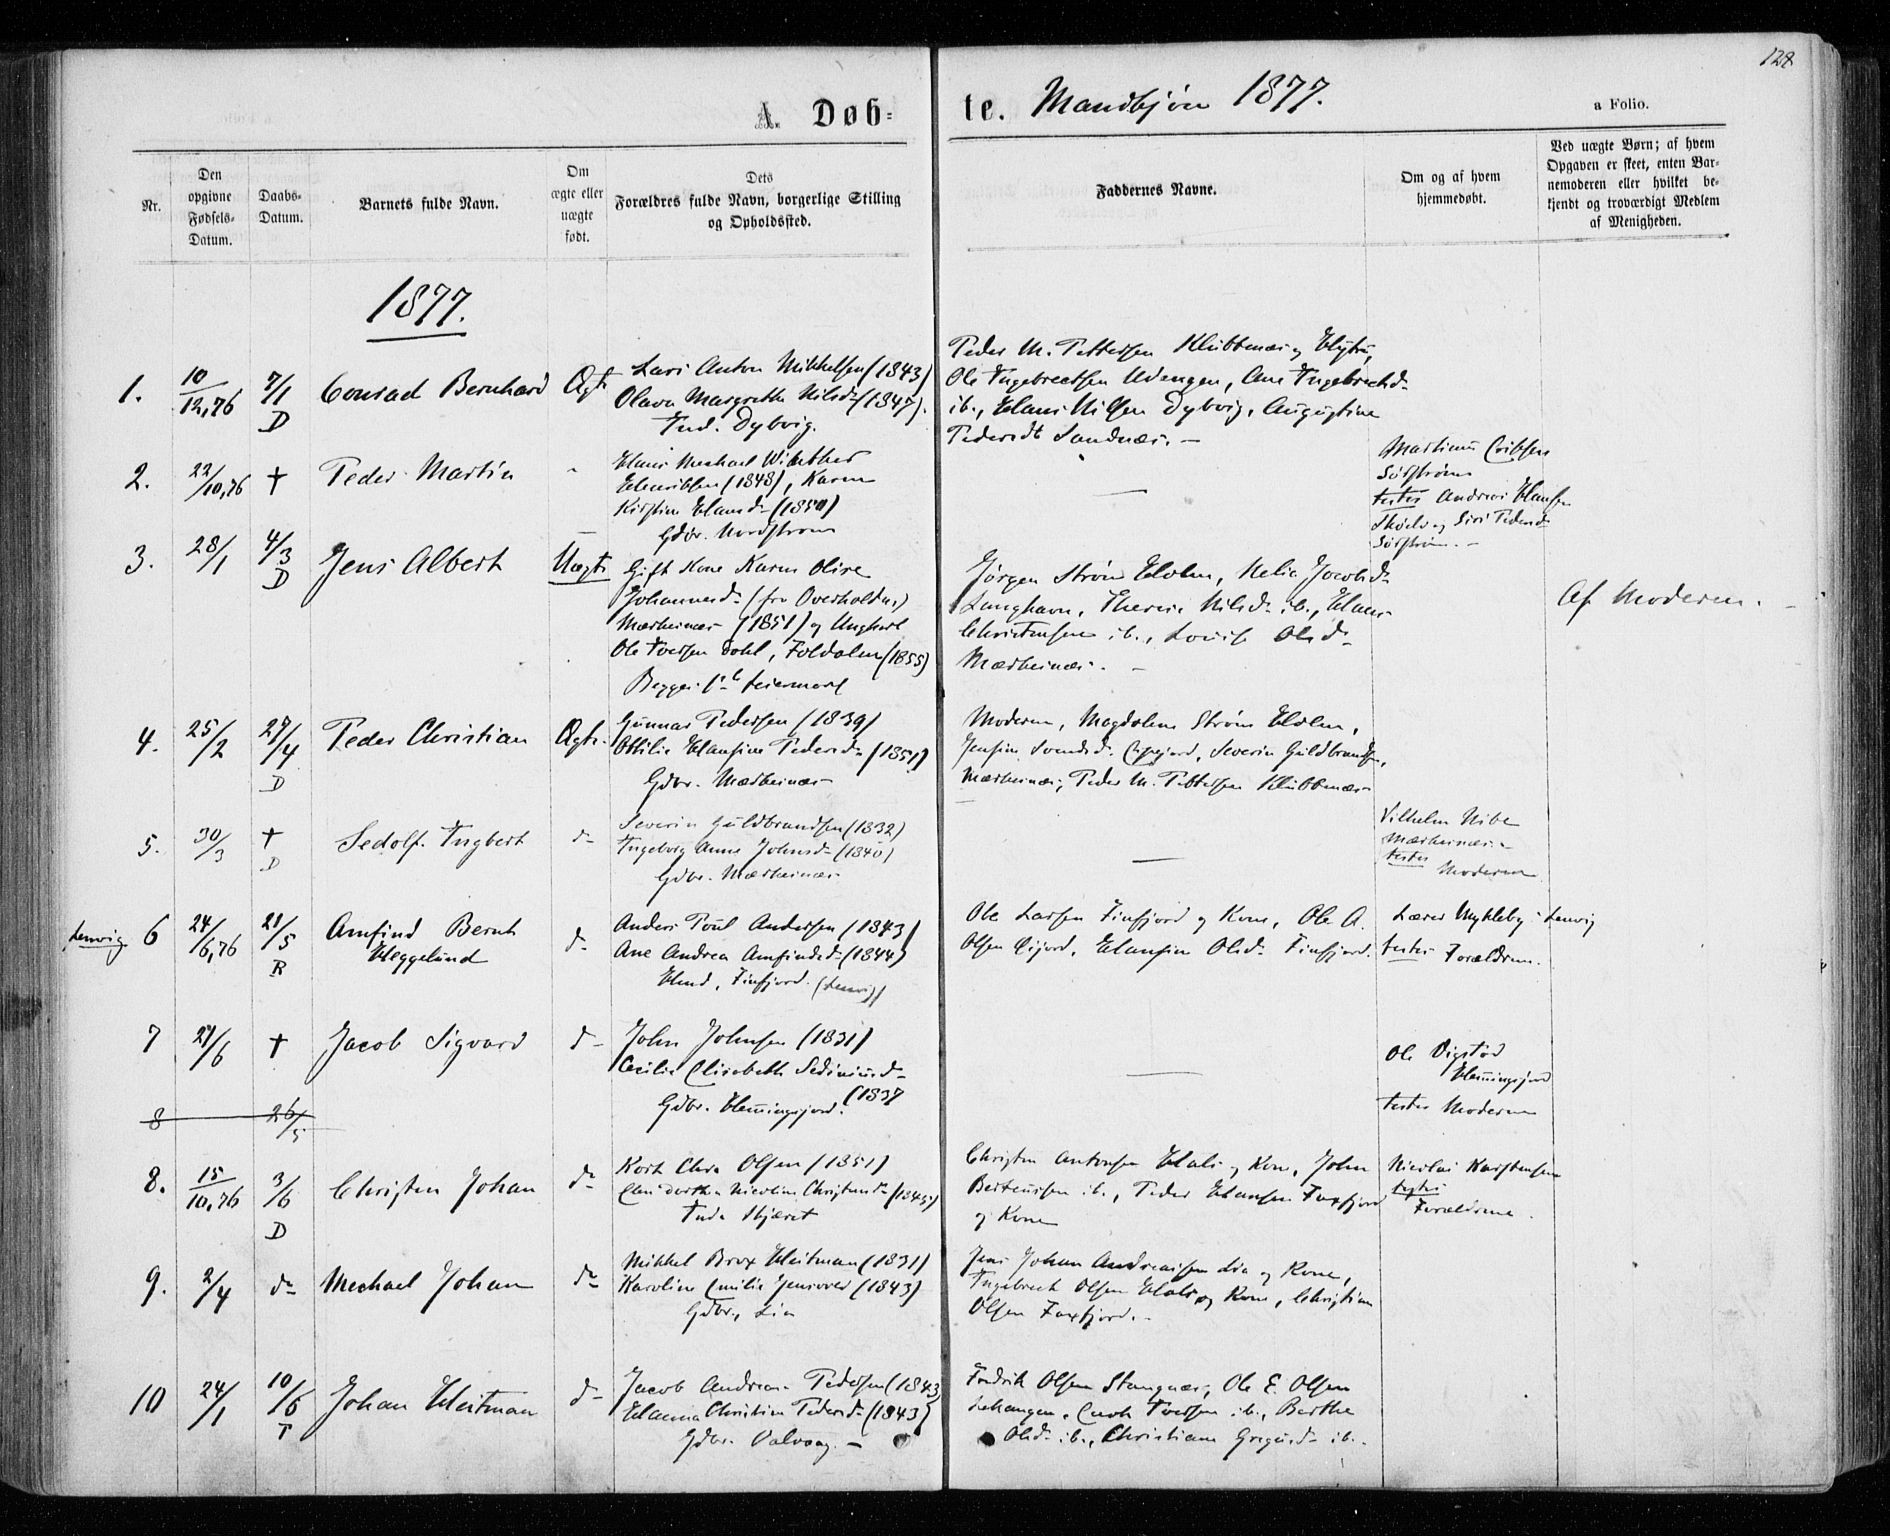 128
A. Døbte. Mandkjøn 1877.
a Folio.
Nr.
Den opgivne Fødsels-Datum.
Daabs-Datum.
Barnets fulde Navn.
Om ægte eller uægte født.
Dets Forældres fulde Navn, borgerlige Stilling og Opholdssted.
Faddernes Navne.
Om og af hvem hjemmedøbt.
Ved uægte Børn; af hvem Opgaven er skeet, enten Barnemoderen eller hvilket bekjendt og troværdigt Medlem af Menigheden.
1877.
1. 10/12,76 7/1 D Conrad Bernhard Ægte
Lars Anton Mikkelsen (1843)
Olava Margrethe Nilsd. (1847).
Ind. Dybvig.
Peder M. Pettersen Klubbenæs og Hustru,
Ole Ingebrectsen Udengen, Ane Ingebrechtsd.
ib., Hans Nilsen Dybvig, Augustine
Pedersdt Sandnæs.
2. 22/10,76 † Peder Martin
Hans Mechael Winther
Henriksen (1848), Karen
Kirstine Hansd. (1850)
Gdbr. Nordstrøm
Martinus Eriksen
Sørstrøm
testes Andreas Hansen
Skjelv og Siri Pedersd
Sørstrøm.
3. 28/1 4/3 D Jens Albert Uægte
Gift Kone Karen Olive
Johannesd. (fra Overhalden)
Mærkenæs (1851) og Ungkarl
Ole Iversen Dahl, Foldalen (1855)
Begges 1ste Leiermaal
Jørgen Strøm Holm, Nelia Jacobsd.
Langhavn, Therese Nilsd. ib., Hans
Christensen ib., Lovise Olsd.
Mærkenæs.
Af Moderen.
4. 25/2 27/4 D Peder Christian Ægte.
Gunnar Pedersen (1839)
Ottilie Hansine Pedersd. (1851)
Gdbr. Mærkenæs
Moderen, Magdalena Strøm Holm,
Jensine Svendsd. Gibgjord, Severin Guldbrandsen,
Mærkenæs, Peder M. Pettersen Klubbenæs
5. 30/3 † D Sedolf Ingbert do
Severin Guldbrandsen (1832)
Ingeborg Anne Johnsd. (1840)
Gdbr. Mærkenæs
Vilhelm Nibe
Mærkenæs.
testes
Moderen
Lenvig 6 24/6,76 21/5 R Arnfind Bernt
Heggelund
do
Anders Poul Andersen (1843)
Ane Andrea Arnfindsd. (1844)
Hmd, Finfjord. (Lenvig)
Ole Larsen Finfjord og Kone, Ole A.
Olsen Eijord, Hansine Olsd. Finfjord.
Lærer Mykleby Lenvig
testes Forældrene.
7 21/6 † Jacob Sigvard do
John Johnsen (1831)
Cecilie Elisabeth Sediniusd.
(1837
Gdbr. Hemmingsjord.
Ole Vigstød
Hemmingsjord
testes Moderen
8 26/5
8. 15/10,76 3/6 D Christen Johan do
Kort Chr. Olsen (1851)
Ellen Dorthea Nicoline Christensd. (1845)
Inds. Skjæret
Christen Antonsen Hals og Kone, John
Berteussen ib., Peder Hansen Faxfjord
og Kone
Nicolai Karstensen
testes
Forældrene.
9. 2/4 do Mechael Johan do
Mikkel Brox Heitman (1831)
Karoline Emilie Jensover (1843)
Gdbr., Lia
Jens Johan Andreassen Lia og Kone,
Ingebrect Olsen Hals og Kone, Christian
Olsen Faxfjord.
10 24/1 10/6 T Johan Heitman do
Jacob Andreas Pedersen (1843)
Hanna Christine Pedersd. (1843)
Gdbr. Valvaag.
Fredrik Olsen Stangnæs, Ole E. Olsen
Lekangen, Enok Iversen ib., Berthe
Olsd. ib., Christiane Gregusd. ib.